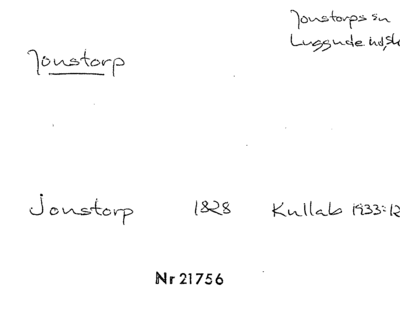 Jonstorps sn
Luggude hd, Sk
Jonstorp
Jonstorp 1828 Kullab 1933:12
Nr 21756